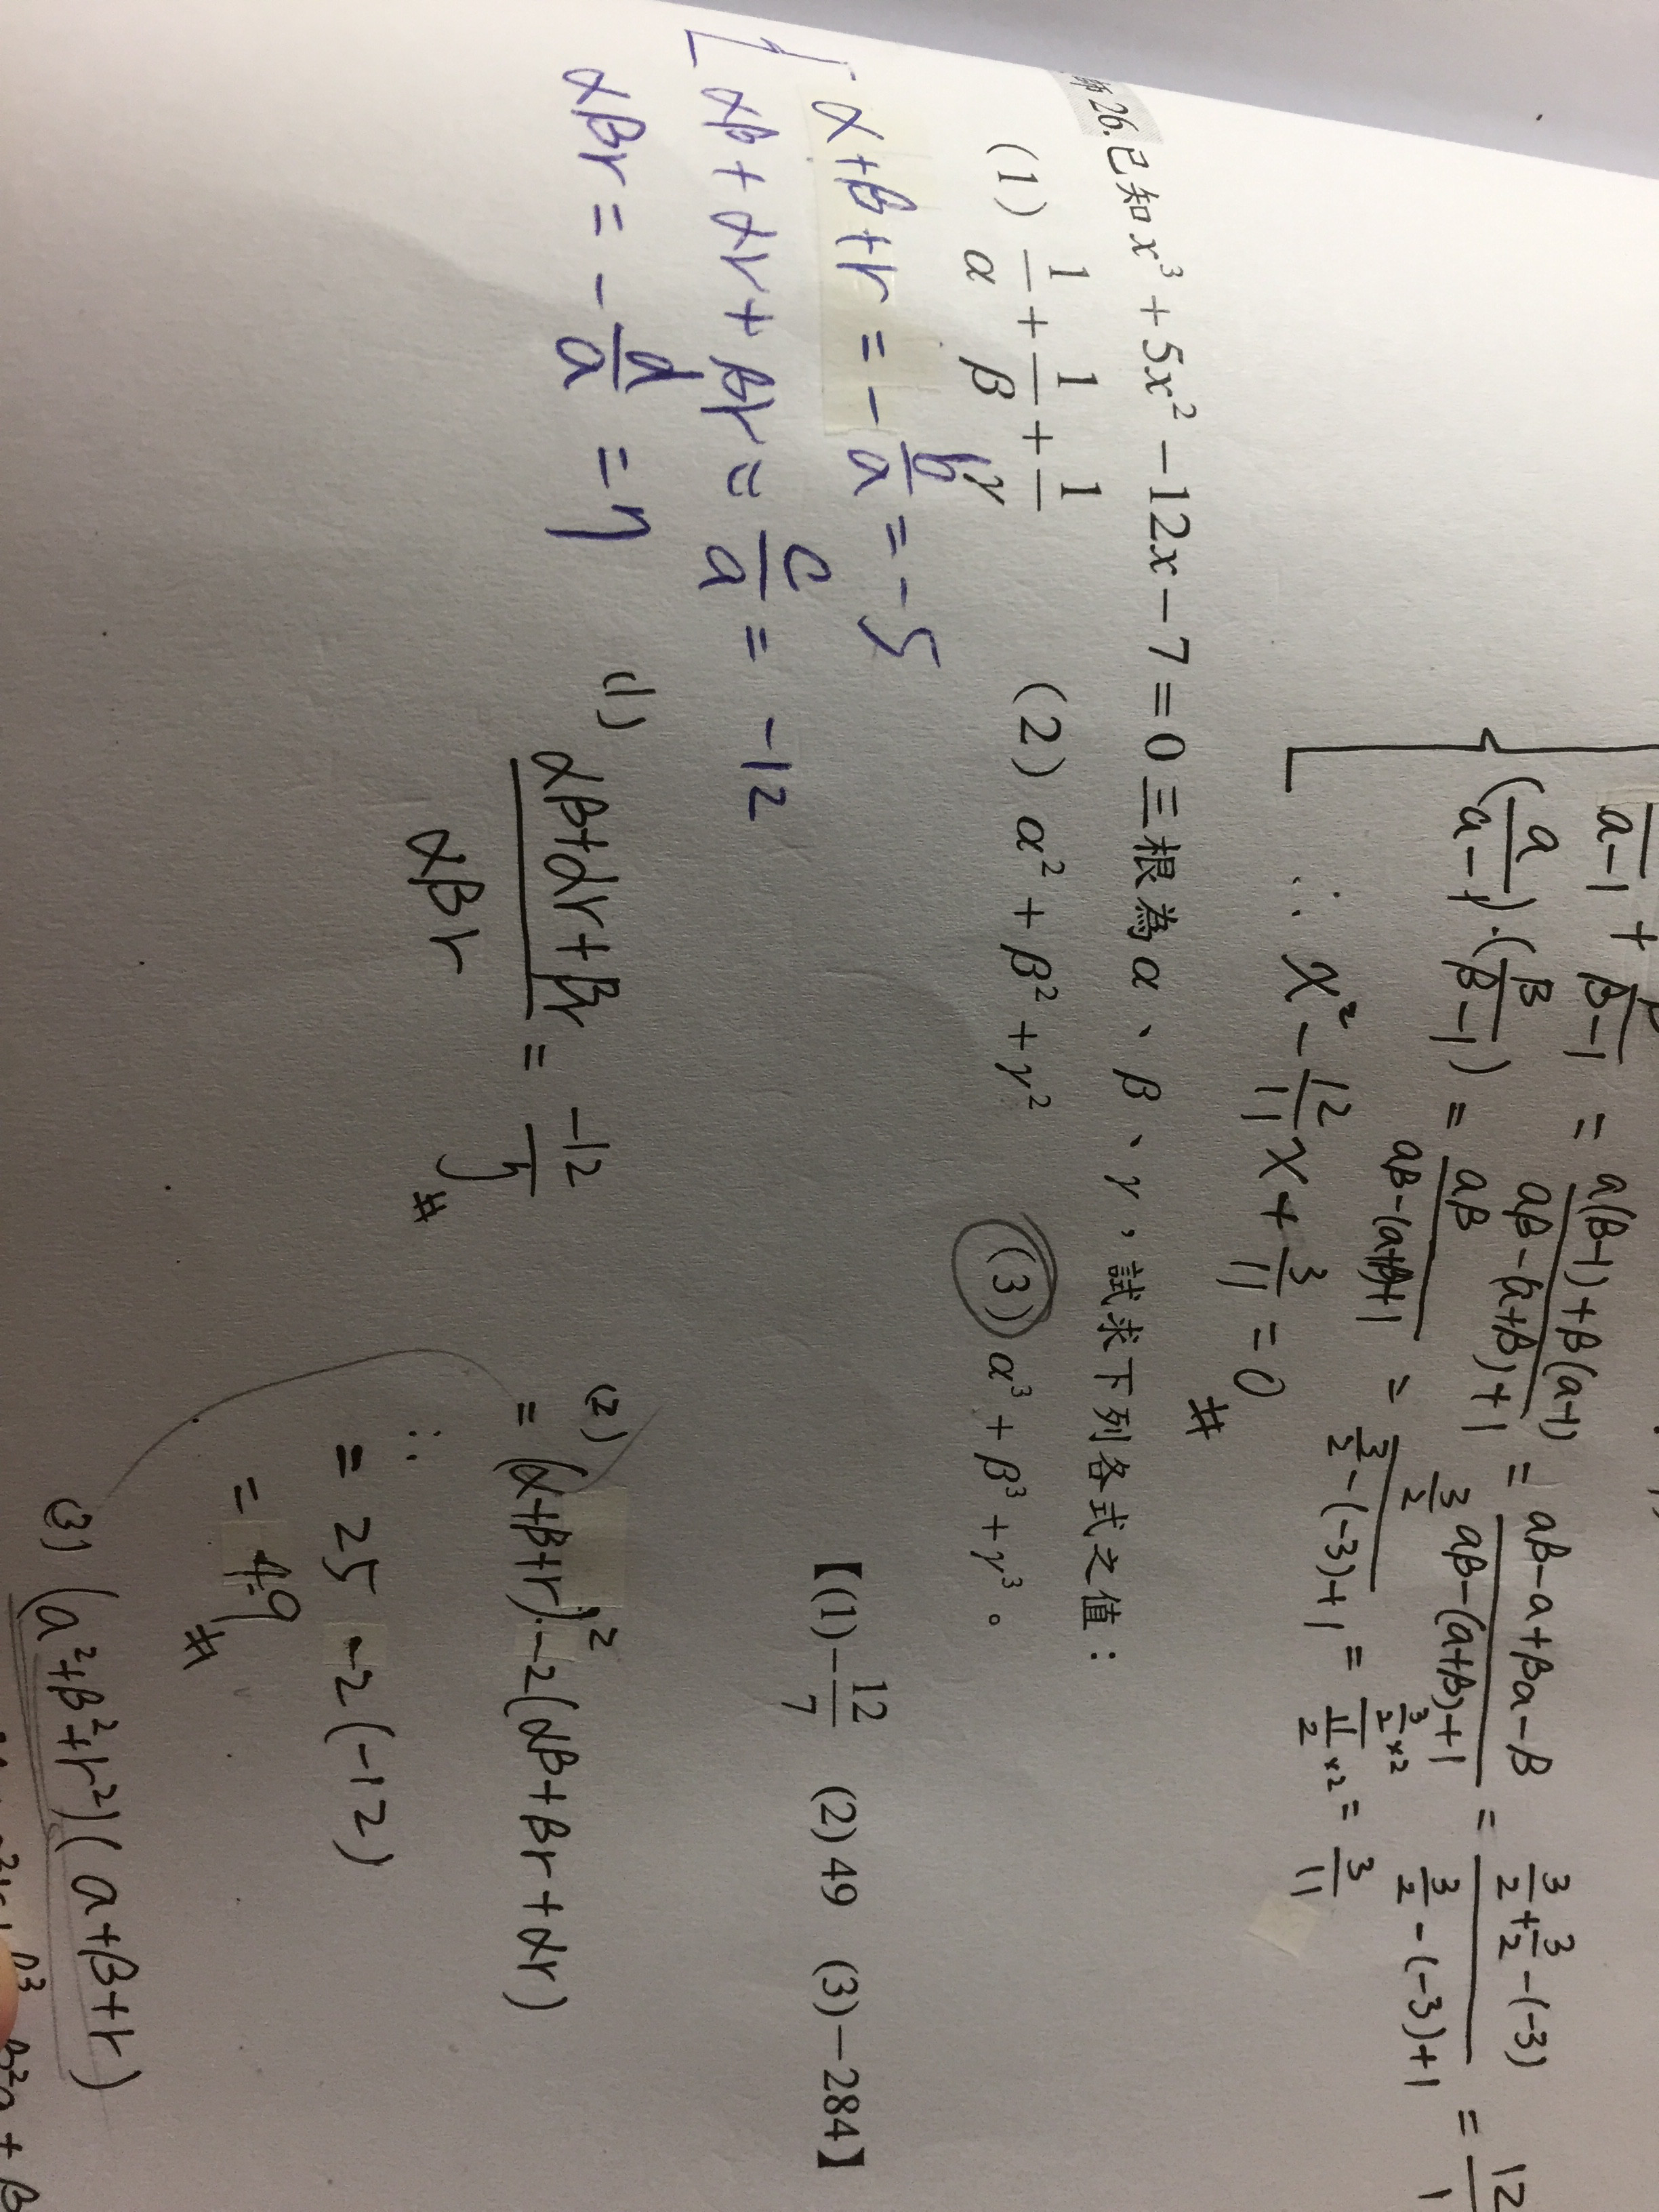 a-1 + β-1 = a(β-1)+β(a-1) / aβ-(a+β)+1 = aβ-a+βa-β / aβ-(a+β)+1 = 3/2+3/2-(-3) / 3/2-(-3)+1 = 12
(a/a-1)·(β/β-1) = aβ / aβ-(a+β)+1 = 3/2 / 3/2-(-3)+1 = 3/2×2 / 11/2×2 = 3/11
∴ x² - 12/11 x + 3/11 = 0 #
26.已知 x³+5x²-12x-7=0 三根為 α、β、γ，試求下列各式之值：
(1) 1/α + 1/β + 1/γ (2) α²+β²+γ² (3) α³+β³+γ³。
【(1)-12/7 (2)49 (3)-284】
α+β+r = -b/a = -5
αβ+αr+βr = c/a = -12
αβr = -d/a = 7
(1) αβ+αr+βr / αβr = -12/7 #
(2) = (α+β+r)²-2(αβ+βr+αr)
∴ = 25-2(-12)
= 49 #
(3) (a²+β²+r²)(a+β+r)